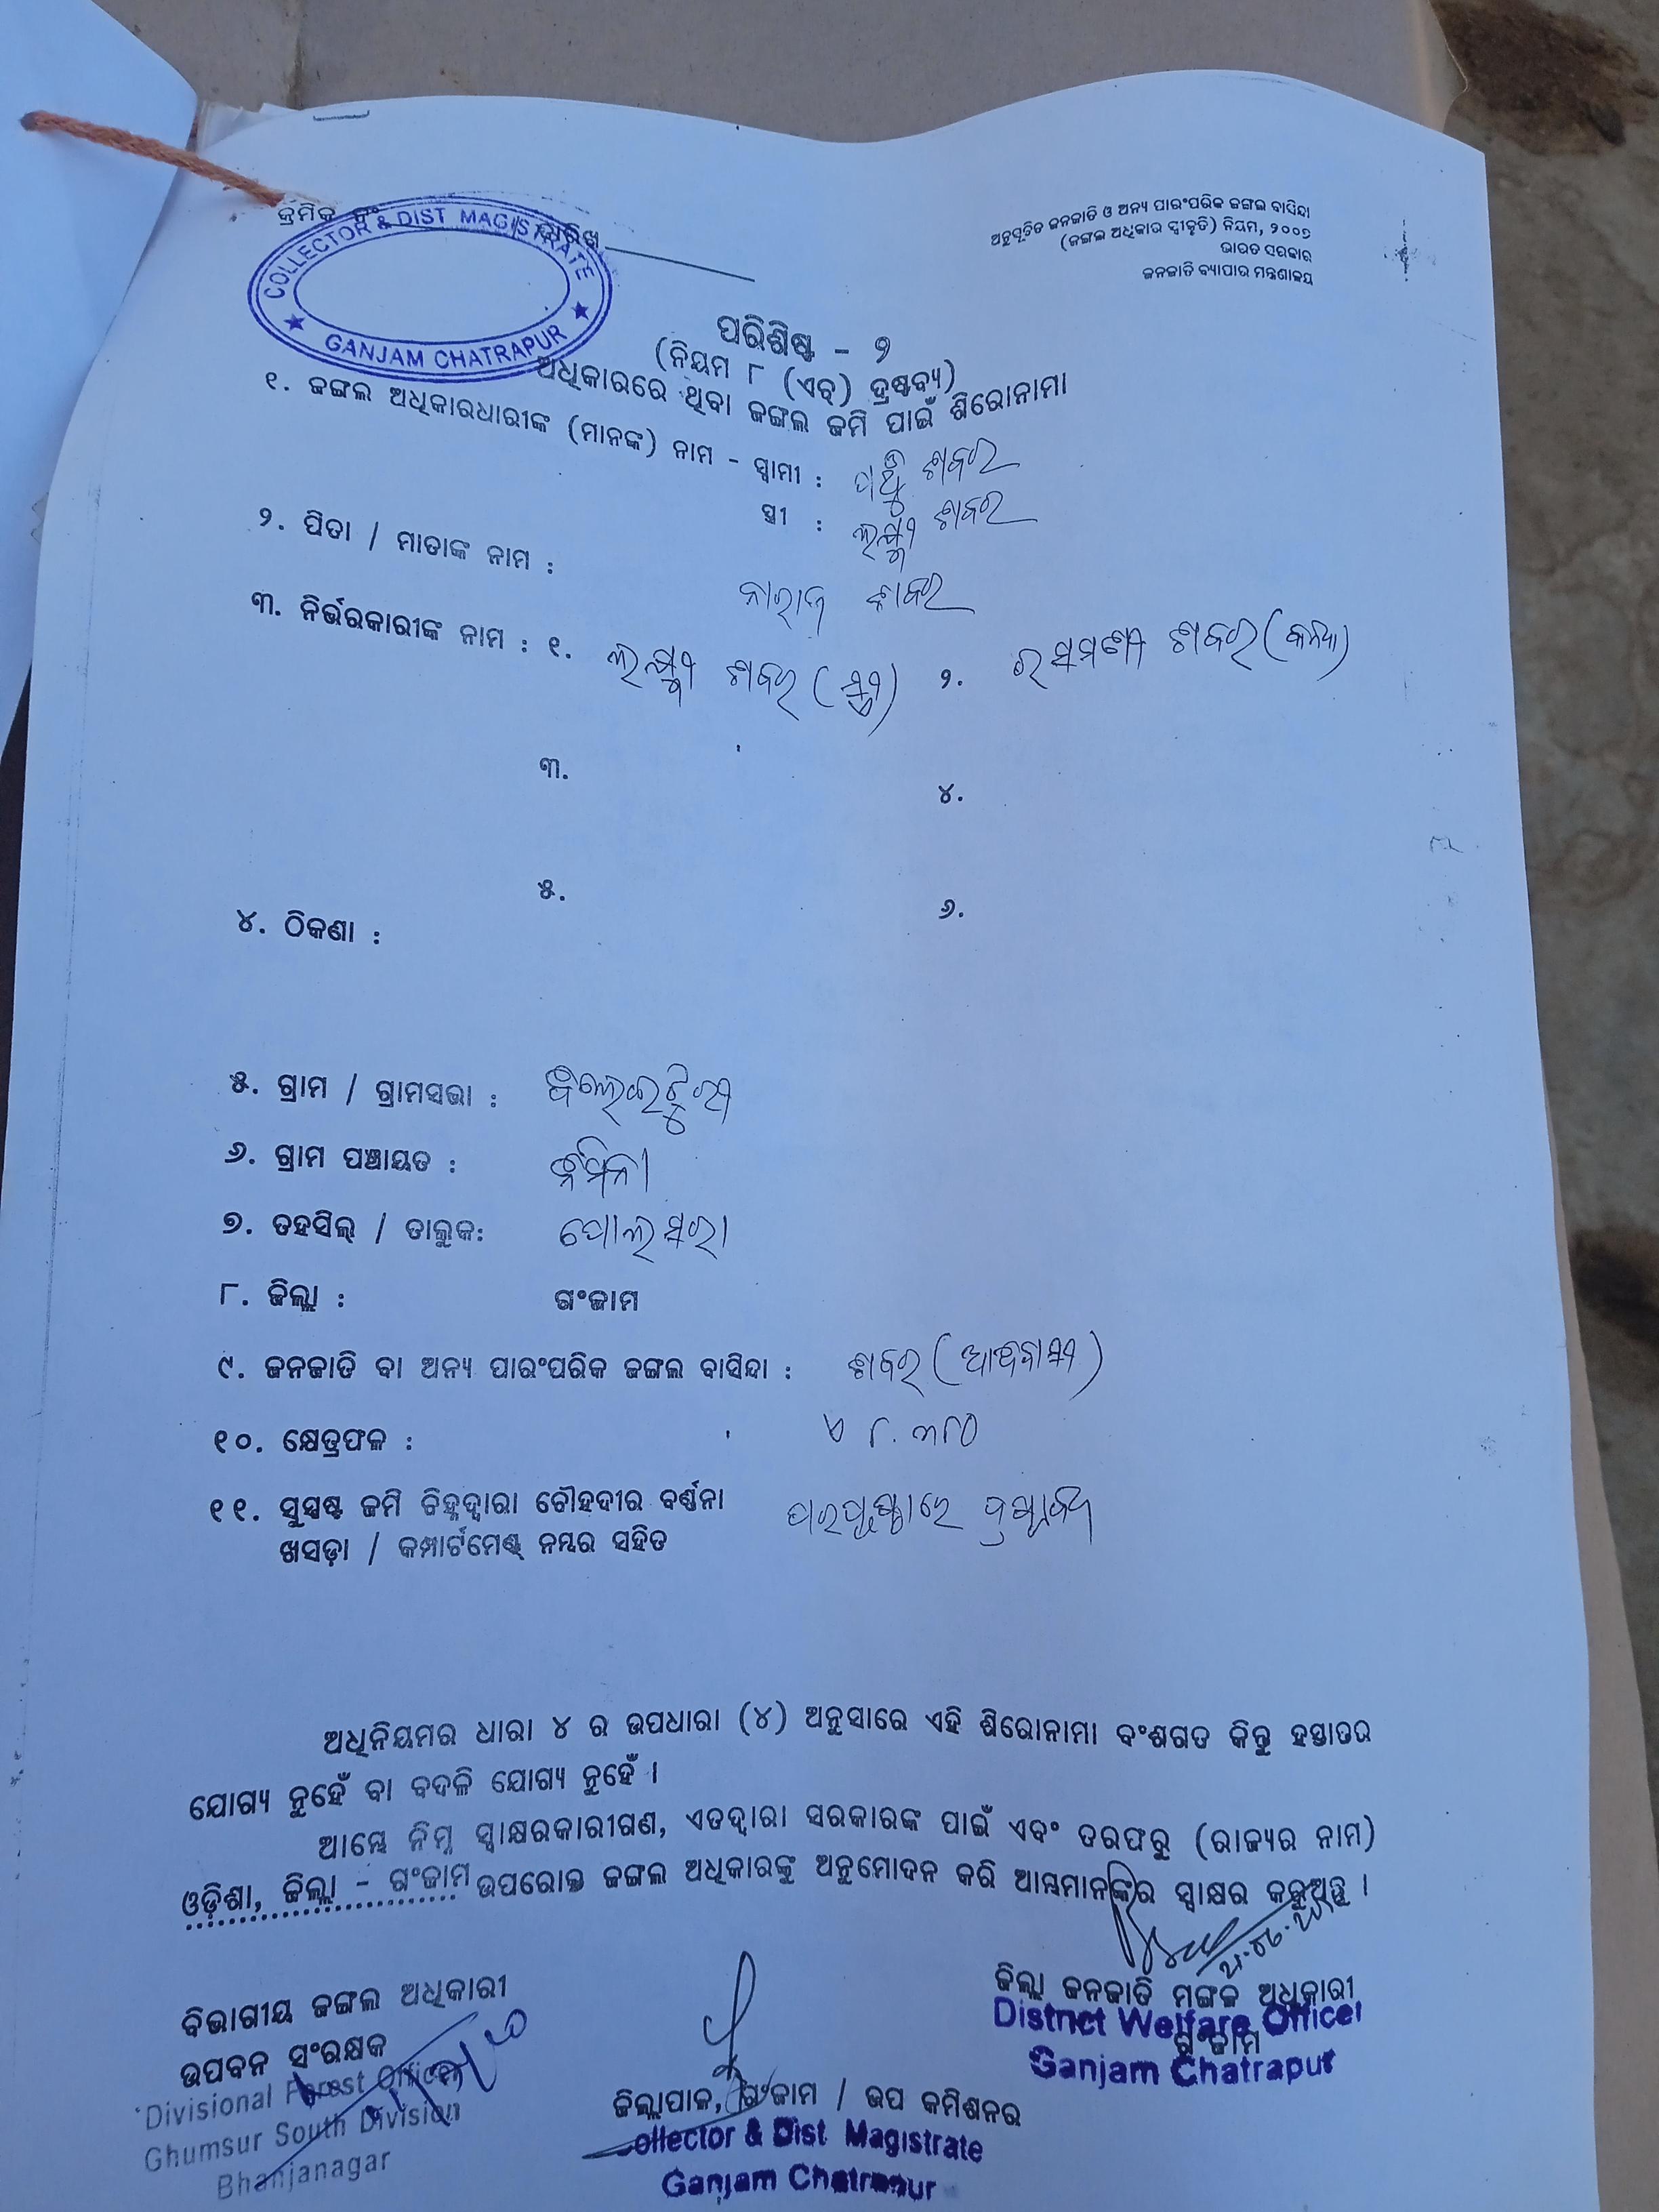 କ୍ରମିକ ନଂ
ତାରିଖ
COLLECTOR & DIST MAGISTRATE
★ GANJAM CHATRAPUR ★
ଅନୁସୂଚିତ ଜନଜାତି ଓ ଅନ୍ୟ ପାରଂପରିକ ଜଙ୍ଗଲ ବାସିନ୍ଦା
(ଜଙ୍ଗଲ ଅଧିକାର ସ୍ୱୀକୃତି) ନିୟମ, ୨୦୦୭
ଭାରତ ସରକାର
ଜନଜାତି ବ୍ୟାପାର ମନ୍ତ୍ରଣାଳୟ
ପରିଶିଷ୍ଟ - ୨
(ନିୟମ ୮ (ଏଚ୍) ଦ୍ରଷ୍ଟବ୍ୟ)
ଅଧିକାରରେ ଥିବା ଜଙ୍ଗଲ ଜମି ପାଇଁ ଶିରୋନାମା
୧. ଜଙ୍ଗଲ ଅଧିକାରଧାରୀଙ୍କ (ମାନଙ୍କ) ନାମ - ସ୍ୱାମୀ : ଶବର
ସ୍ତ୍ରୀ : ଶବର
୨. ପିତା / ମାତାଙ୍କ ନାମ : ଶବର
୩. ନିର୍ଭରକାରୀଙ୍କ ନାମ : ୧. ଶବର (ସ୍ତ୍ରୀ) ୨. ଶବର (କନ୍ୟା)
୩. ୪.
୫. ୬.
୪. ଠିକଣା :
୫. ଗ୍ରାମ / ଗ୍ରାମସଭା :
୬. ଗ୍ରାମ ପଞ୍ଚାୟତ :
୭. ତହସିଲ୍ / ତାଲୁକ: ପୋଲସରା
୮. ଜିଲ୍ଲା : ଗଂଜାମ
୯. ଜନଜାତି ବା ଅନ୍ୟ ପାରଂପରିକ ଜଙ୍ଗଲ ବାସିନ୍ଦା : ଶବର (ଆଦିବାସୀ)
୧୦. କ୍ଷେତ୍ରଫଳ : ଏ ୮.୩୮୦
୧୧. ସୁସ୍ପଷ୍ଟ ଜମି ଚିହ୍ନଦ୍ୱାରା ଚୌହଦୀର ବର୍ଣ୍ଣନା
ଖସଡ଼ା / କମ୍ପାର୍ଟମେଣ୍ଟ ନମ୍ବର ସହିତ
ଅଧିନିୟମର ଧାରା ୪ ର ଉପଧାରା (୪) ଅନୁସାରେ ଏହି ଶିରୋନାମା ବଂଶଗତ କିନ୍ତୁ ହସ୍ତାନ୍ତର
ଯୋଗ୍ୟ ନୁହେଁ ବା ବଦଳି ଯୋଗ୍ୟ ନୁହେଁ ।
ଆମ୍ଭେ ନିମ୍ନ ସ୍ୱାକ୍ଷରକାରୀଗଣ, ଏତଦ୍ୱାରା ସରକାରଙ୍କ ପାଇଁ ଏବଂ ତରଫରୁ (ରାଜ୍ୟର ନାମ)
ଓଡ଼ିଶା, ଜିଲ୍ଲା - ଗଂଜାମ ଉପରୋକ୍ତ ଜଙ୍ଗଲ ଅଧିକାରଙ୍କୁ ଅନୁମୋଦନ କରି ଆମ୍ଭମାନଙ୍କର ସ୍ୱାକ୍ଷର କରୁଅଛୁ ।
ବିଭାଗୀୟ ଜଙ୍ଗଲ ଅଧିକାରୀ
ଉପବନ ସଂରକ୍ଷକ
Divisional Forest Officer
Ghumsur South Division
Bhanjanagar
ଜିଲ୍ଲାପାଳ, ଗଂଜାମ / ଉପ କମିଶନର
Collector & Dist Magistrate
Ganjam Chatrapur
ଜିଲ୍ଲା ଜନଜାତି ମଙ୍ଗଳ ଅଧିକାରୀ
ଗଂଜାମ
District Welfare Officer
Ganjam Chatrapur